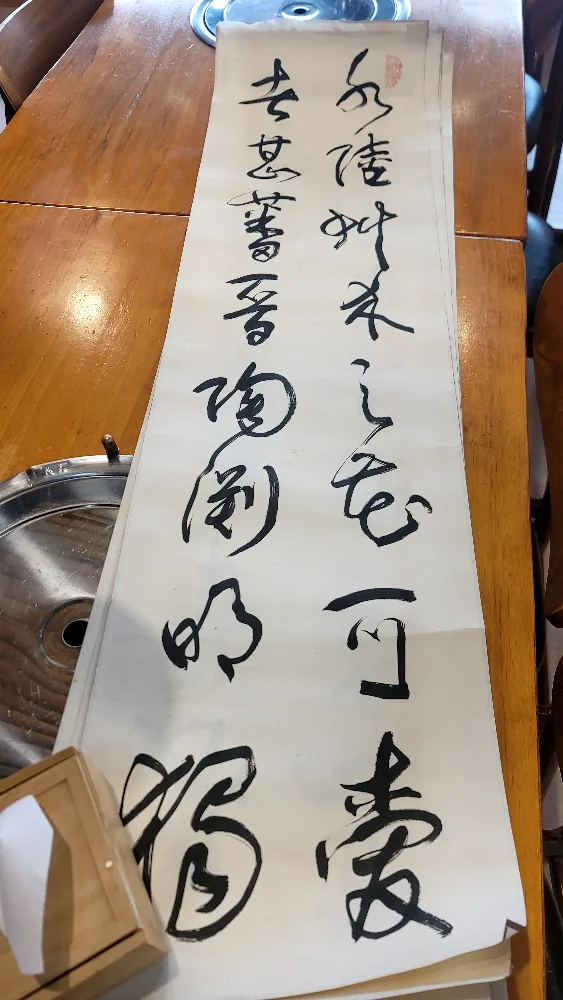 水陸艸木之花可愛
者甚蕃晉陶淵明獨